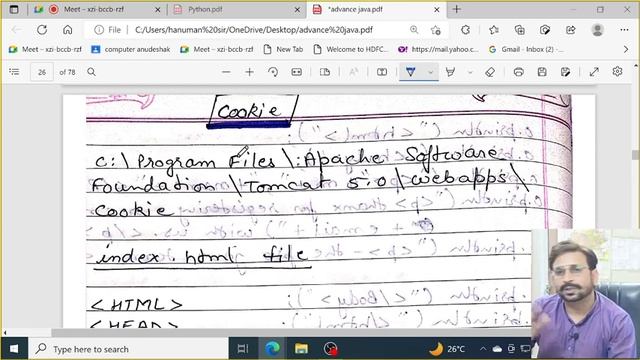 Meet – xzi-bccb-rzf
Python.pdf
*advance java.pdf
File
C:/Users/hanuman%20sir/OneDrive/Desktop/advance%20java.pdf
Meet – xzi-bccb-rzf
computer anudeshak
YouTube
Maps
New Tab
Welcome to HDFC...
https://mail.yahoo.c...
Gmail - Inbox (2) -...
26 of 78
Cookie
C:\Program Files\:Apache Software
Foundation\Tomcat 5.0\webapps\
Cookie
index.html file
<HTML>
<HEAD>
Type here to search
26°C